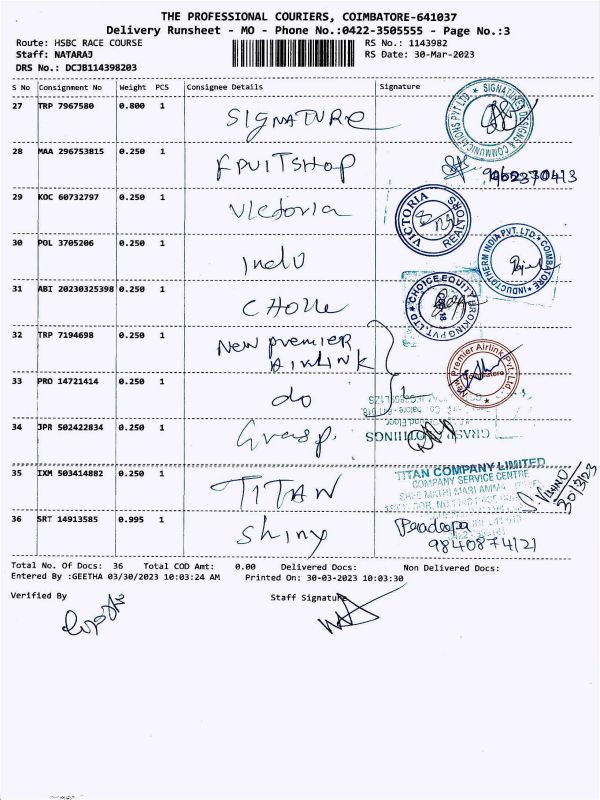 THE PROFESSIONAL COURIERS, COIMBATORE-641037
Delivery Runsheet - MO - Phone No.:0422-3505555 - Page No.:3
Route: HSBC RACE COURSE RS No.: 1143982
Staff: NATARAJ RS Date: 30-Mar-2023
DRS No.: DCJB114398203
S No Consignment No Weight PCS Consignee Details Signature
27 TRP 7967580 0.800 1 SIGNATURE
SIGNATURES DESIGNS & COMMUNICATIONS PVT LTD.
28 MAA 296753815 0.250 1 FRUITSHOP
29 KOC 60732797 0.250 1 Victoria
VICTORIA REALTORS
30 POL 3705206 0.250 1 Indu
INDUCTOTHERM INDIA PVT. LTD. COIMBATORE
31 ABI 20230325398 0.250 1 CHOICE
CHOICE EQUITY BROKING PVT. LTD
18
32 TRP 7194698 0.250 1 New premier
AIRLINK
New Premier Airlink Pvt. Ltd.
33 PRO 14721414 0.250 1 do
34 JPR 502422834 0.250 1 Grasp
CLOTHINGS
35 IXM 503414882 0.250 1 TITAN
TITAN COMPANY LIMITED
COMPANY SERVICE CENTRE
30/3/23
36 SRT 14913585 0.995 1 Shiny
Pradeepa
9840874121
Total No. Of Docs: 36 Total COD Amt: 0.00 Delivered Docs: Non Delivered Docs:
Entered By :GEETHA 03/30/2023 10:03:24 AM Printed On: 30-03-2023 10:03:30
Verified By Staff Signature